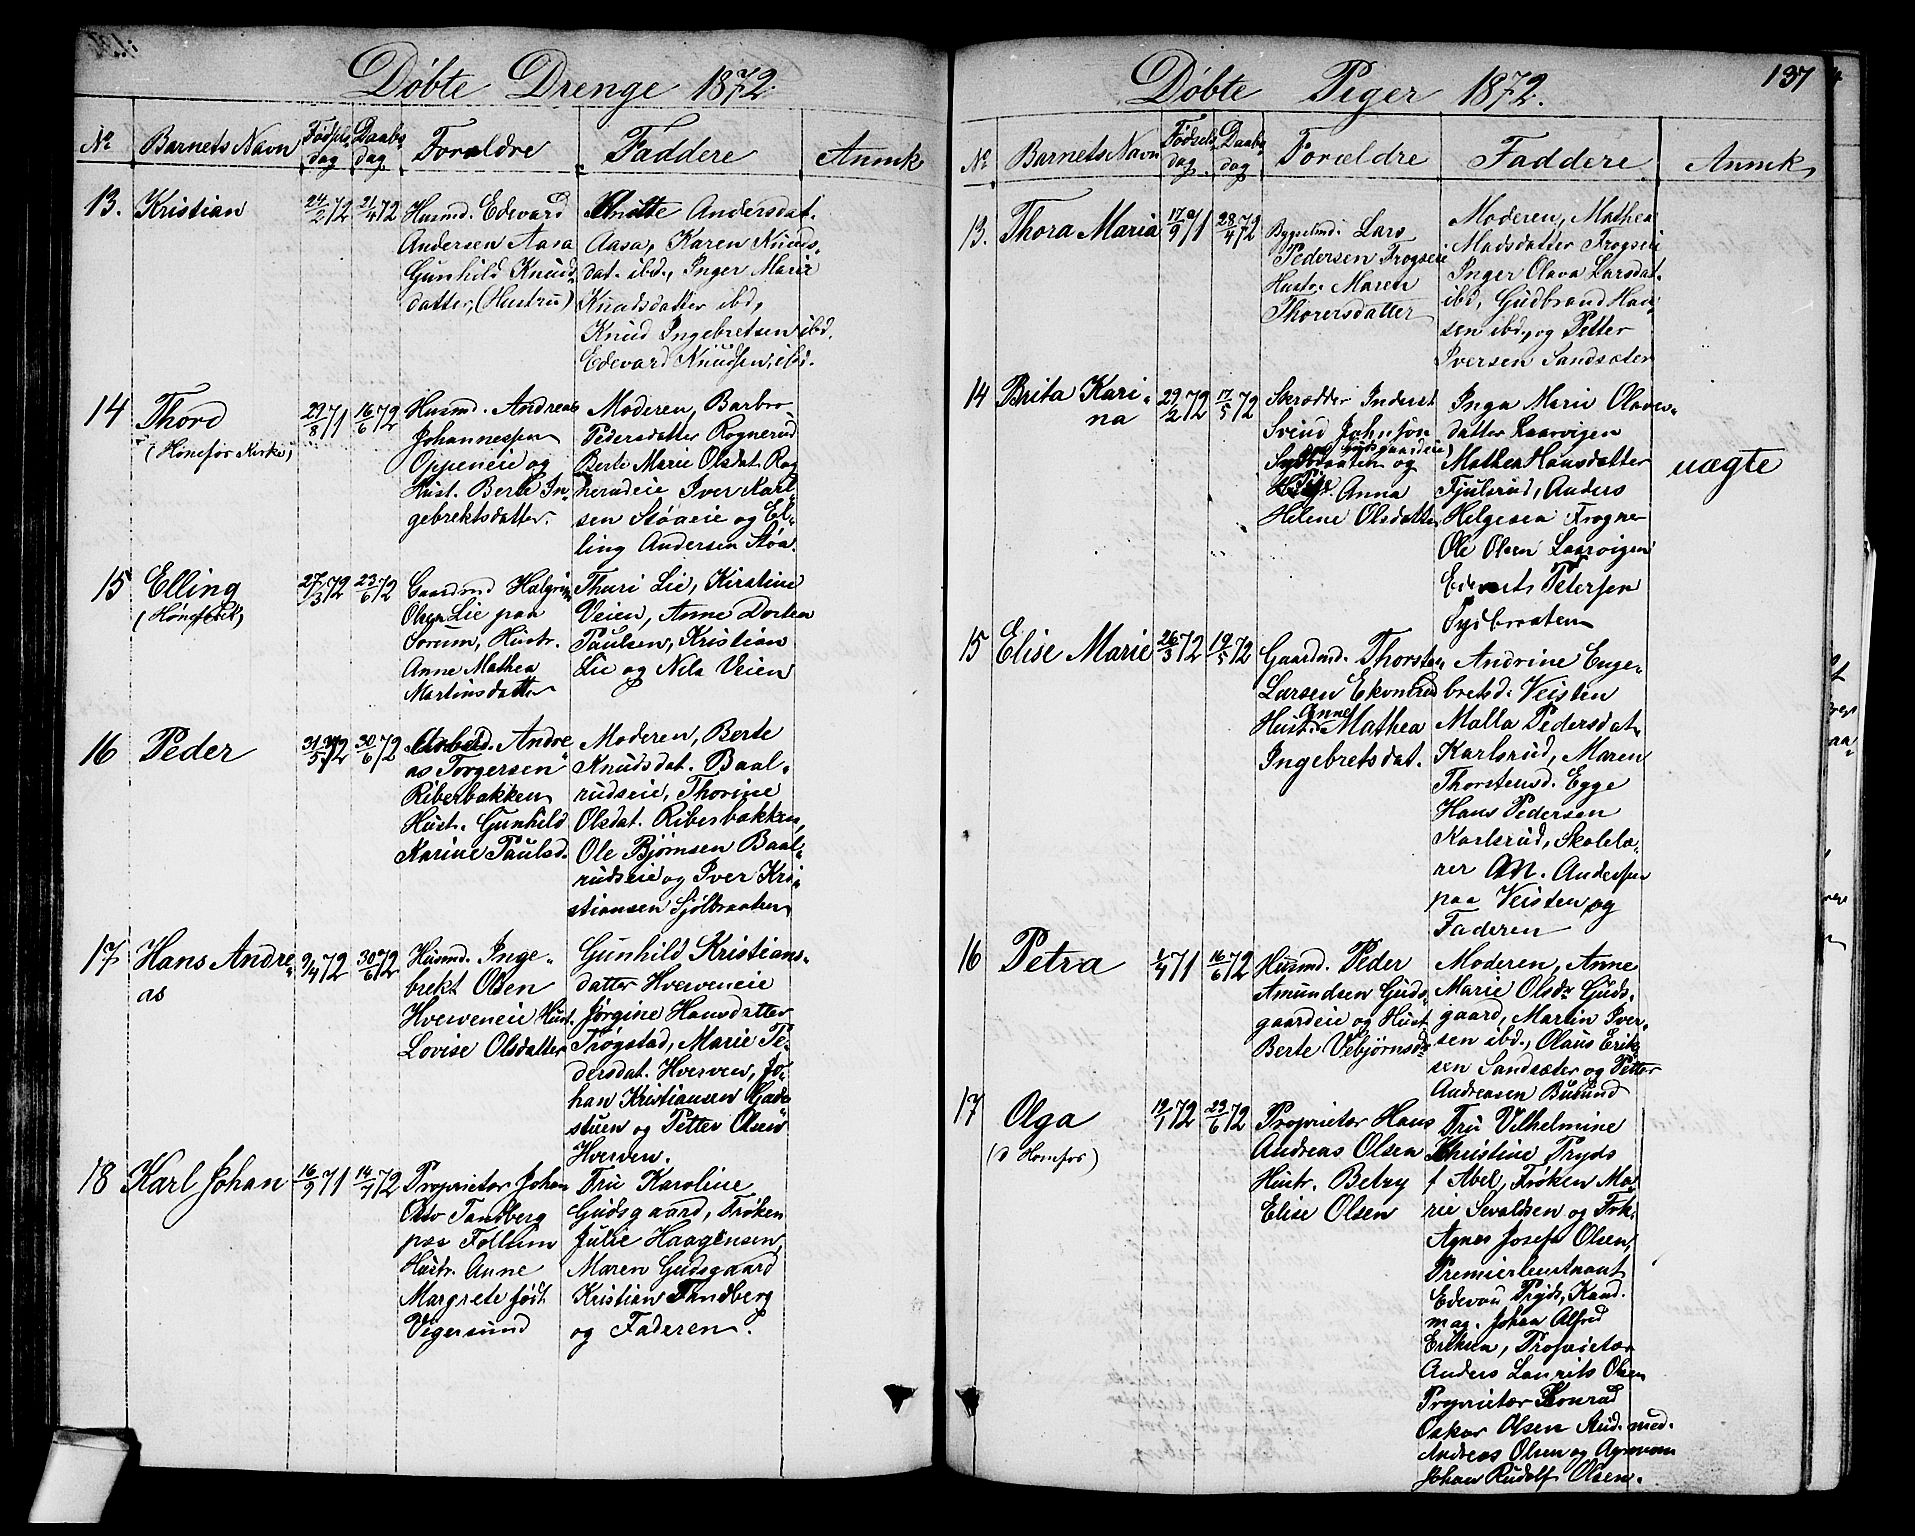 Døbte Drenge 1872.
No Barnets Navn Fødsels dag Daabs dag Forældre Faddere Anmk
13. Kristian 24/2 72 21/4 72
Husmd. Edevard
Andersen Aasa
Gunhild Knuds
datter, (Hustru)
Andersdat.
Aasa, Karen Knuds,
dat. ibd., Inger Marie
Knudsdatter ibd,
Knud Ingebretsen ibd.
Edevard Knudsen, ibd.
14 Thord 29/8 71 16/6 72
(Hønefos Kirke)
Husmd. Andreas
Johannessen
Oppeneie og
Hust. Berte In-
gebrektsdatter.
Moderen, Barbro
Pedersdatter Rognerud
Berte Marie Olsdat. Rog
nerudeie Iver Karl-
sen Støaeie og El-
ling Andersen Støa.
15 Elling 27/3 72 23/6 72
(Hønef. Kirk)
Gaardmd Halgrim
Olsen Lie paa
Sørum, Hustr.
Anne Mathea
Martinsdatter
Thuri Lie, Kirstine
Veien, Anne Dortea
Paulsen, Kristian
Lie og Nils Veien
16 Peder 31/5 72 30/6 72
Arbeid. Andre
as Torgersen
Riberbakken
Hust. Gunhild
Karine Paulsd.
Moderen, Berte
Knudsdat. Baal-
rudseie, Thorine
Olsdat. Riberbakken,
Ole Bjørnsen Baal-
rudseie og Iver Kri-
stiansen Sjølbraaten
17 Hans Andre- 9/4 72 30/6 72
as
Husmd. Inge-
brekt Olsen
Hverveneie Hust.
Lovise Olsdatter
Gunhild Kristians-
datter Hverveneie
Jørgine Hansdatter
Trøgstad, Marie Pe-
dersdat. Hverven, Jo-
han Kristiansen
stuen og Petter Olsen
Hverven.
18 Karl Johan 16/9 71 14/7 72
Proprietær Johan
Otto Tandberg
paa Follum
Hustr. Anne
Margrete født
Vigersund
Fru Karoline
Gudsgaard, Frøken
Julie Haagensen,
Maren Gudsgaard
Kristian Tandberg
og Faderen.
Døbte Piger 1872. 137
No Barnets Navn Fødsels dag Daabs dag Forældre Faddere Anmk
13. Thora Maria 17/9 71 28/4 72
Bygselmd. Lars
Pedersen Frogseie
Hustr. Maren
Thorersdatter
Moderen, Mathea
Madsdatter Frogseie
Inger Olava Larsdat.
ibd, Gudbrand Han-
sen ibd., og Petter
Iversen Sandsæter
14 Brita Kari- 29/2 72 17/5 72
na
Skrædder Inderst
Svend Johnson
Sydbraaten og
Anna
Helene Olsdatter
Inga Marie Olaves-
datter Laarvigen
Mathea Hansdatter
Fjulsrud, Anders
Helgesen Frogner
Ole Olsen Laarvigen
Petersen
Sydbraaten
uægte
15 Elise Marie 26/3 72 19/5 72
Gaardmd. Thorsten
Larsen Ekornrud
Hustr. Anne Mathea
Ingebretsdat.
Andrine Enge-
bretsd. Veisten
Malla Pedersdat.
Karlsrud, Maren
Thorstensd. Egge
Hans Pedersen
Karlsrud, Skolelæ-
rer M. Andersen
paa Veisten og
Faderen
16 Petra 1/4 71 16/6 72
Husmd. Peder
Amundsen Guds-
gaardeie og Hust
Berte Vebjørnsdr
Moderen, Anne
Marie Olsdr Guds-
gaard, Martin Iver-
sen ibd., Olaus Erik-
sen Sandsæter og Petter
Andreasen Busund
17 Olga 19/1 72 23/6 72
(i Hønefos)
Proprietær Hans
Andreas Olsen
Hustr. Betzy
Elise Olsen
Fru Vilhelmine
Christine Pryds
f Abel, Frøken Ma-
rie Sevaldsen og Frk.
Agnes Josefa Olsen,
Premierleutnant
Pryds, Kand.
mag. Johan Alfred
Eriksen, Proprietær
Anders Laurits Olsen
Proprietær Konrad
Oskar Olsen Stud. med.
Andreas Olsen og Agronom
Johan Rudolf Olsen.